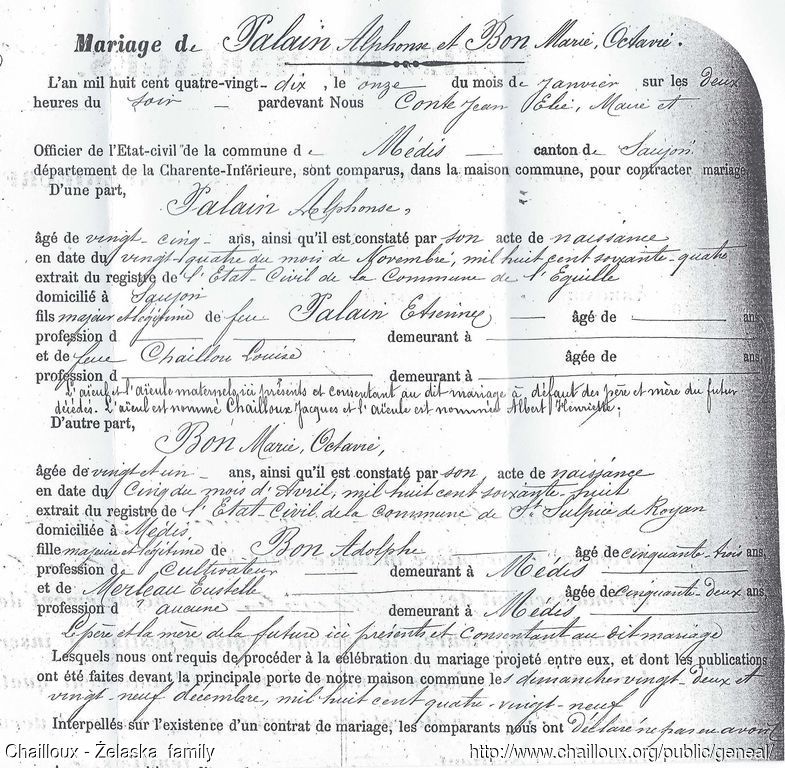 Mariage de Palain Alphonse et Bon Marie, Octavie.
L'an mil huit cent quatre-vingt-dix, le onze du mois de Janvier sur les deux
heures du soir pardevant Nous Conte Jean Elie, Maire et
Officier de l'Etat-civil de la commune de Médis canton de Saujon
département de la Charente-Inférieure, sont comparus, dans la maison commune, pour contracter mariage
D'une part,
Palain Alphonse,
âgé de vingt-cinq ans, ainsi qu'il est constaté par son acte de naissance
en date du vingt-quatre du mois de Novembre, mil huit cent soixante-quatre
extrait du registre de l'Etat-Civil de la Commune de l'Eguille
domicilié à Saujon
fils majeur et légitime de feu Palain Etienne âgé de ans,
profession d demeurant à
et de feue Chaillou Louise âgée de ans,
profession d demeurant à
L'aïeul et l'aïeule maternels, ici présents et consentant au dit mariage à défaut des père et mère du futur
décédés. L'aïeul est nommé Chailloux Jacques et l'aïeule est nommée Albert Henriette;
D'autre part,
Bon Marie, Octavie,
âgée de vingt et un ans, ainsi qu'il est constaté par son acte de naissance
en date du Cinq du mois d'Avril, mil huit cent soixante-huit
extrait du registre de l'Etat-Civil de la Commune de St Sulpice de Royan
domiciliée à Médis
fille majeure et légitime de Bon Adolphe âgé de cinquante-trois ans,
profession de Cultivateur demeurant à Médis
et de Merleau Eustelle âgée de cinquante-deux ans
profession d'aucune demeurant à Médis
Le père et la mère de la future ici présents et consentant au dit mariage
Lesquels nous ont requis de procéder à la célébration du mariage projeté entre eux, et dont les publications
ont été faites devant la principale porte de notre maison commune les dimanches vingt-deux et
vingt-neuf décembre, mil huit cent quatre-vingt-neuf
Interpellés sur l'existence d'un contrat de mariage, les comparants nous ont déclaré ne pas en avoir
Chailloux - Želaska family http://www.chailloux.org/public/geneal/